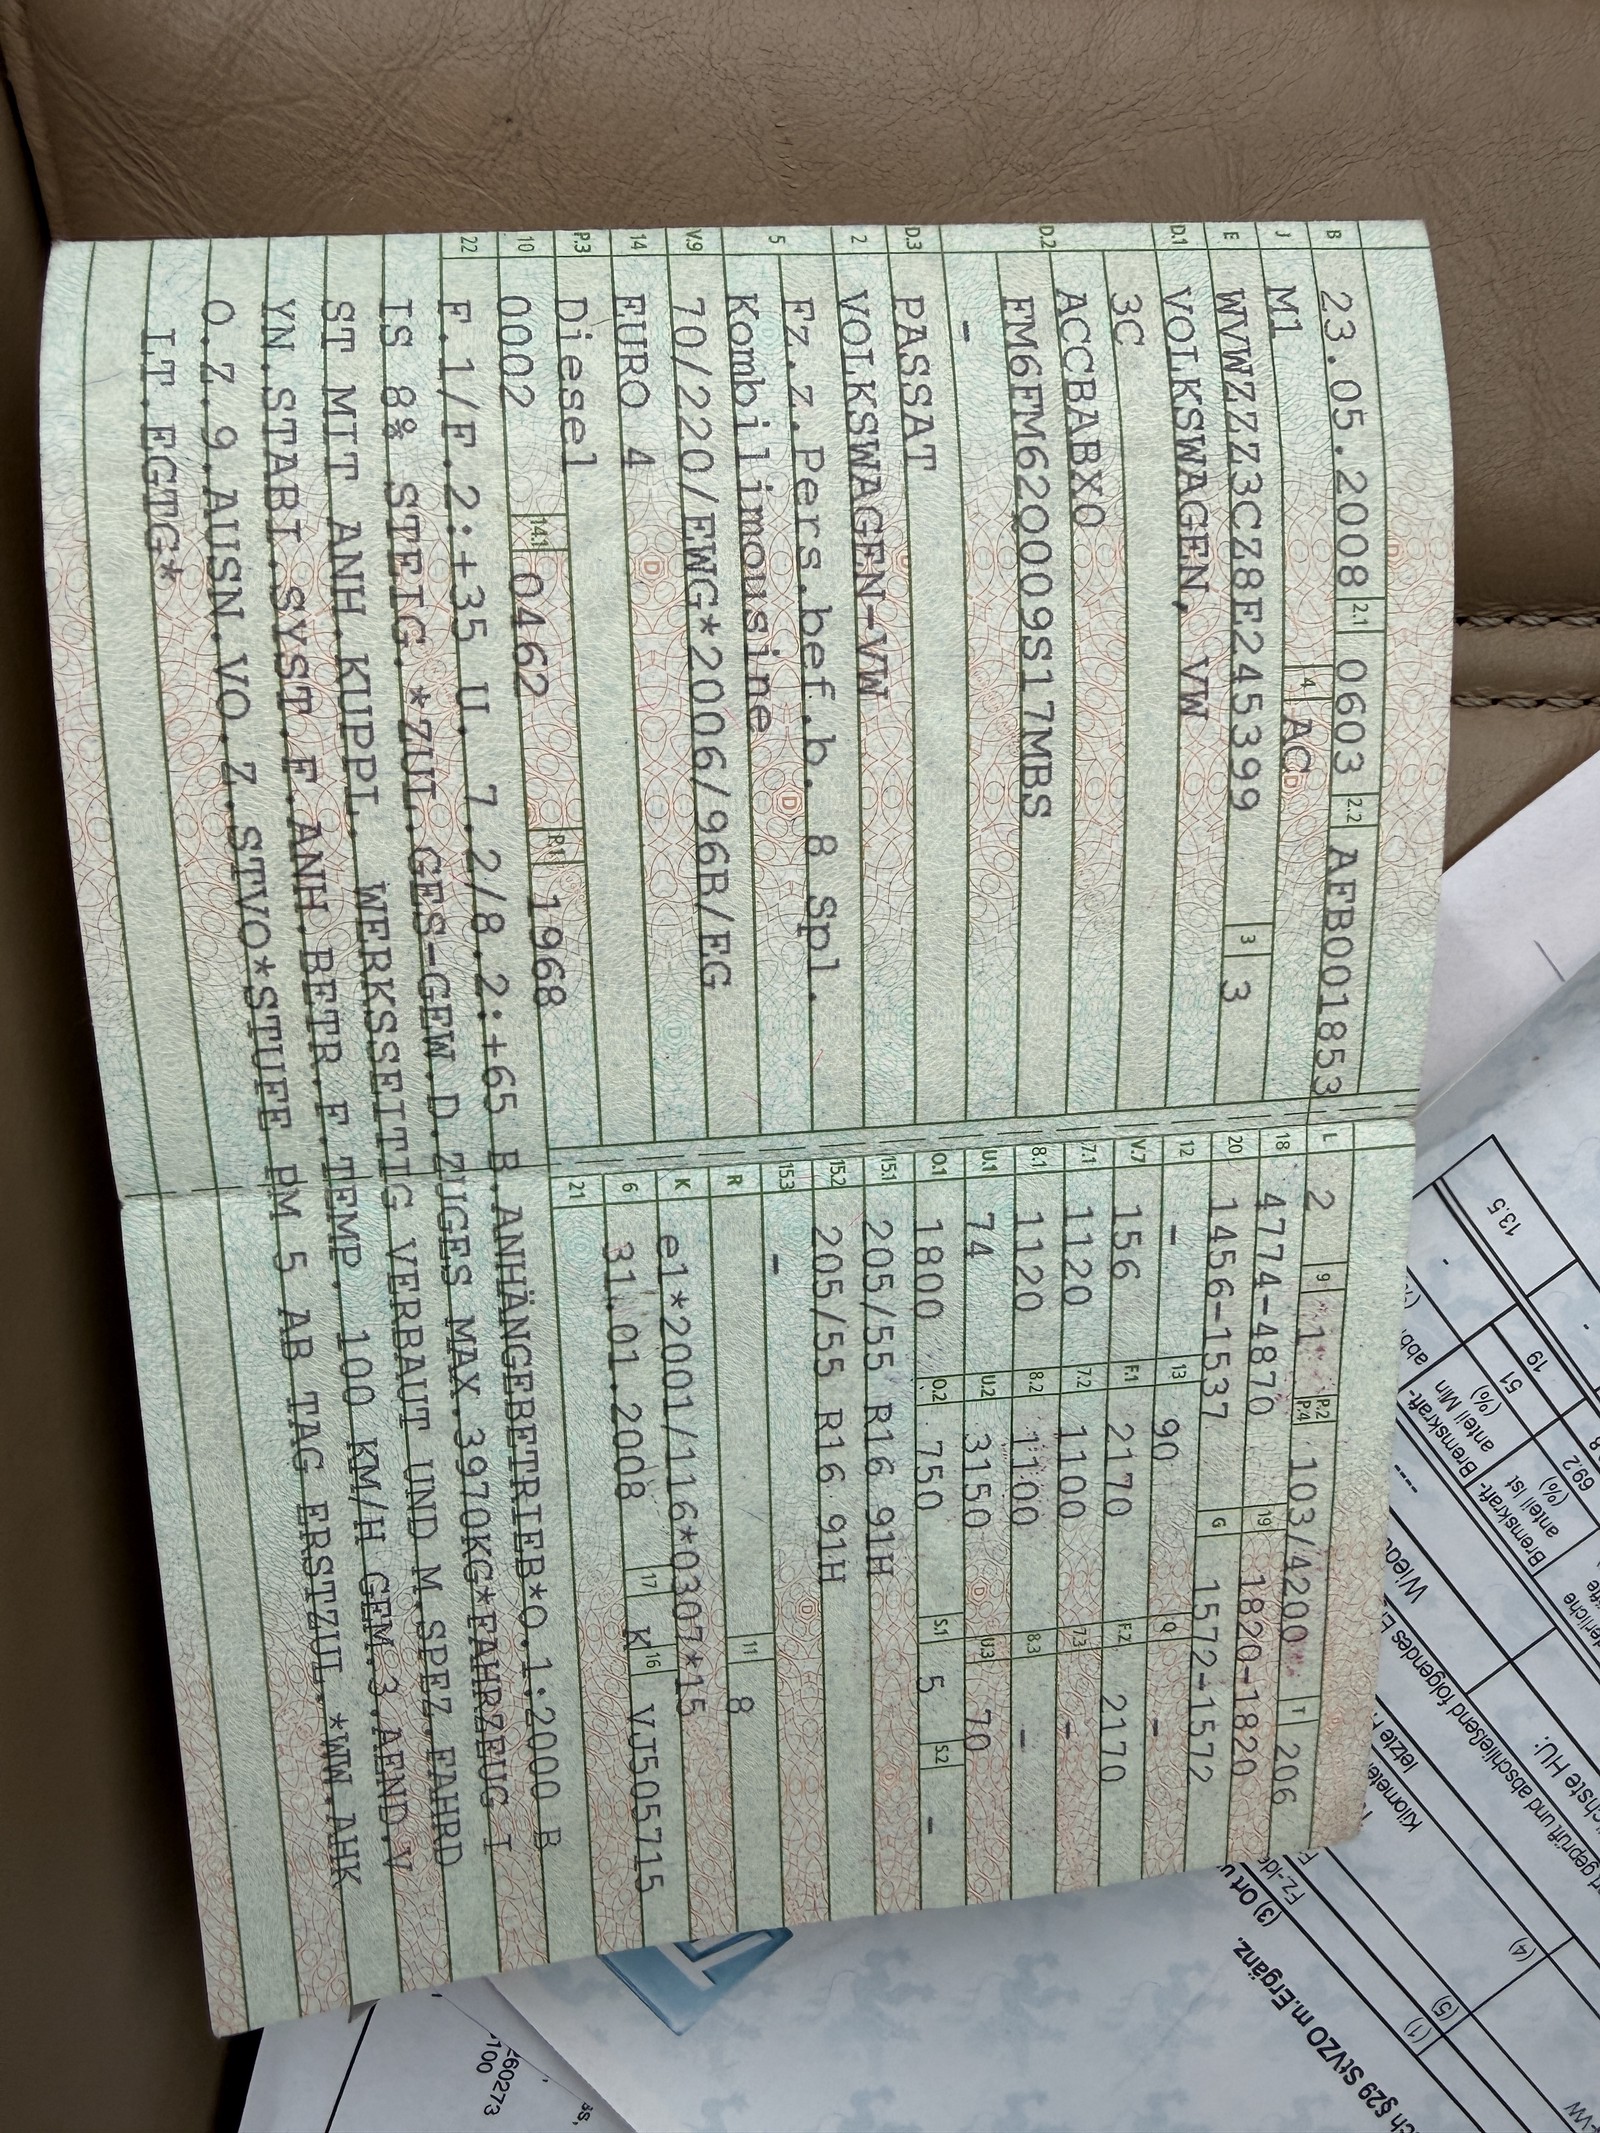 B 23.05.2008 2.1 0603 2.2 AFB001853
J M1 4 AC
E WVWZZZ3CZ8E245399 3 3
D.1 VOLKSWAGEN, VW
D.2 3C
ACCBABX0
FM6FM62Q009S17MBS
-
D.3 PASSAT
2 VOLKSWAGEN-VW
5 Fz.z.Pers.bef.b. 8 Spl.
Kombilimousine
V.9 70/220/EWG*2006/96B/EG
14 EURO 4
P.3 Diesel
10 0002 14.1 0462 P.1 1968
L 2 9 1 P.2 P.4 103/4200 T 206
18 4774-4870 19 1820-1820
20 1456-1537 G 1572-1572
12 - 13 90 Q -
V.7 156 F.1 2170 F.2 2170
7.1 1120 7.2 1100 7.3 -
8.1 1120 8.2 1100 8.3 -
U.1 74 U.2 3150 U.3 70
O.1 1800 O.2 750 S.1 5 S.2 -
15.1 205/55 R16 91H
15.2 205/55 R16 91H
15.3 -
R 11 8
K e1*2001/116*0307*15
6 31.01.2008 17 K 16 VJ505715
21
22 F.1/F.2:+35 U. 7.2/8.2:+65 B.ANHÄNGEBETRIEB*O.1:2000 B
IS 8% STEIG.*ZUL.GES-GEW.D.ZUGES MAX.3970KG*FAHRZEUG I
ST MIT ANH.KUPPL. WERKSSEITIG VERBAUT UND M.SPEZ.FAHRD
YN.STABI.SYST.F.ANH.BETR.F.TEMP. 100 KM/H GEM.3.AEND.V
O.Z.9.AUSN.VO.Z. STVO*STUFE PM 5 AB TAG ERSTZUL.*WW.AHK
LT.EGTG*
13.5
19
51
69.2
abb
Bremskraft-
anteil Min
(%)
Bremskraft-
anteil Ist
(%)
---
chste HU:
ert geprüft und abschließend folgendes
Kilometer
letzte
Fz-Ide
(3) Ort u
(4)
(5)
(1)
ch §29 StVZO m.Ergänz.
-VW
260273
100